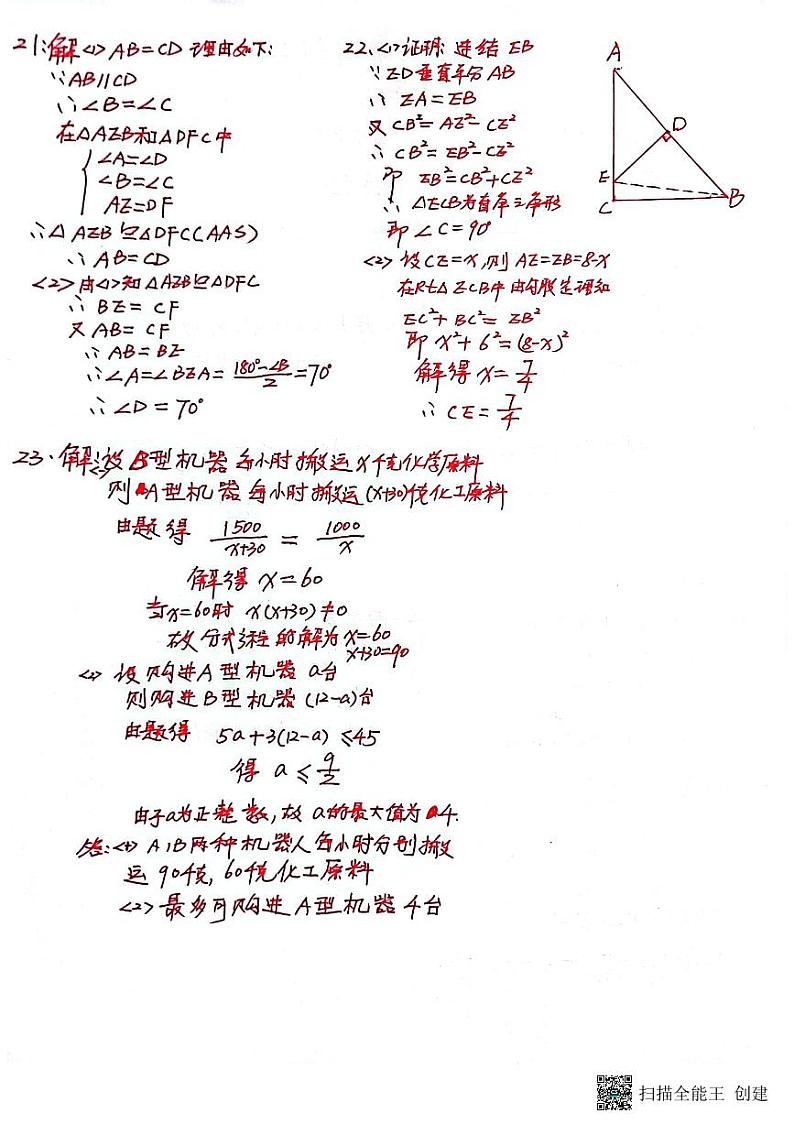 21:解<1> AB=CD 理由如下:
∵AB∥CD
∴∠B=∠C
在△AEB和△DFC中
∠A=∠D
∠B=∠C
AE=DF
∴△AEB≌△DFC(AAS)
∴AB=CD
<2>由<1>知△AEB≌△DFC
∴BE=CF
又AB=CF
∴AB=BE
∴∠A=∠BEA=(180°-∠B)/2=70°
∴∠D=70°
22、<1>证明:连结EB
∵ED垂直平分AB
∴EA=EB
又CB²=AE²-CE²
∴CB²=EB²-CE²
即 EB²=CB²+CE²
∴△ECB为直角三角形
即∠C=90°
<2>设CE=x,则AE=EB=8-x
在Rt△ECB中由勾股定理知
EC²+BC²=EB²
即x²+6²=(8-x)²
解得x=7/4
∴CE=7/4
A
D
E
C
B
23.解:<1>设B型机器每小时搬运x千克化学原料
则A型机器每小时搬运(x+30)千克化工原料
由题得 1500/(x+30)=1000/x
解得x=60
当x=60时 x(x+30)≠0
故分式方程的解为x=60
x+30=90
<2>设购进A型机器a台
则购进B型机器(12-a)台
由题得 5a+3(12-a)≤45
得a≤9/2
由于a为正整数,故a的最大值为4.
答:<1>A,B两种机器人每小时分别搬
运90千克,60千克化工原料
<2>最多可购进A型机器4台
扫描全能王 创建